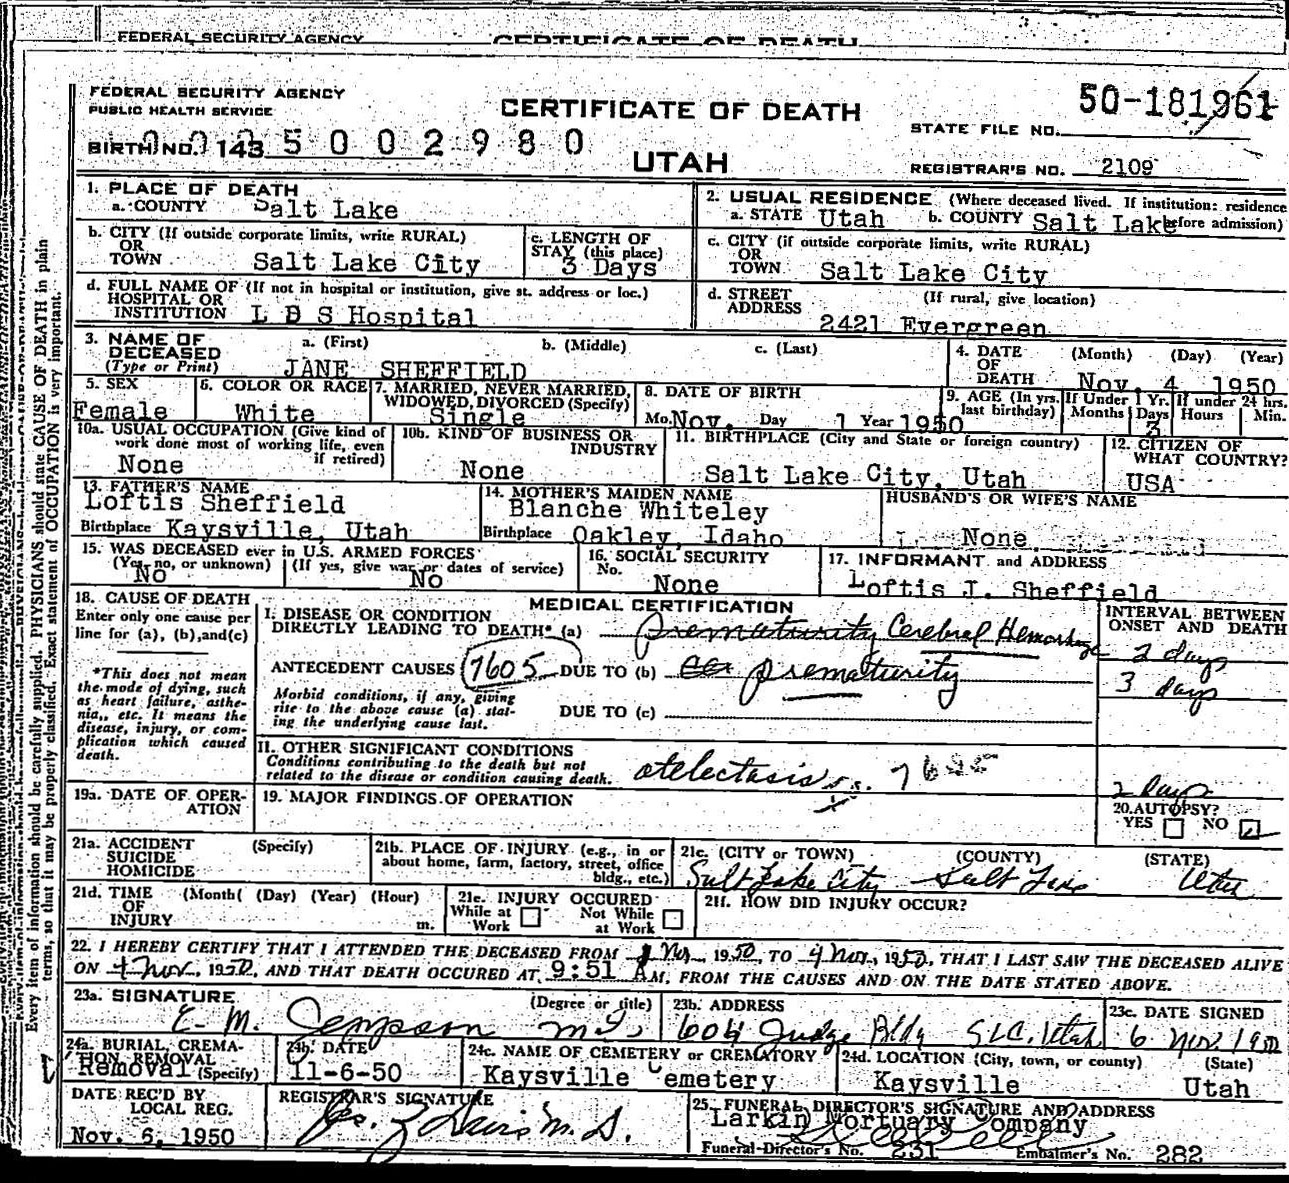 FEDERAL SECURITY AGENCY CERTIFICATE OF DEATH
FEDERAL SECURITY AGENCY
PUBLIC HEALTH SERVICE
CERTIFICATE OF DEATH
UTAH
50-181961
STATE FILE NO.
BIRTH NO. 143 5 0 0 2 9 8 0
REGISTRAR'S NO. 2109
1. PLACE OF DEATH
a. COUNTY Salt Lake
2. USUAL RESIDENCE (Where deceased lived. If institution: residence before admission)
a. STATE Utah b. COUNTY Salt Lake
b. CITY (If outside corporate limits, write RURAL)
OR
TOWN Salt Lake City
c. LENGTH OF
STAY (this place)
3 Days
c. CITY (if outside corporate limits, write RURAL)
OR
TOWN Salt Lake City
d. FULL NAME OF (If not in hospital or institution, give st. address or loc.)
HOSPITAL OR
INSTITUTION L D S Hospital
d. STREET (If rural, give location)
ADDRESS
2421 Evergreen
3. NAME OF
DECEASED
(Type or Print)
a. (First) b. (Middle) c. (Last)
JANE SHEFFIELD
4. DATE (Month) (Day) (Year)
OF
DEATH Nov. 4 1950
5. SEX
Female
6. COLOR OR RACE
White
7. MARRIED, NEVER MARRIED,
WIDOWED, DIVORCED (Specify)
Single
8. DATE OF BIRTH
Mo. Nov. Day 1 Year 1950
9. AGE (In yrs. last birthday)
If Under 1 Yr. If under 24 hrs.
Months Days Hours Min.
3
10a. USUAL OCCUPATION (Give kind of
work done most of working life, even
if retired)
None
10b. KIND OF BUSINESS OR
INDUSTRY
None
11. BIRTHPLACE (City and State or foreign country)
Salt Lake City, Utah
12. CITIZEN OF
WHAT COUNTRY?
USA
13. FATHER'S NAME
Loftis Sheffield
Birthplace Kaysville, Utah
14. MOTHER'S MAIDEN NAME
Blanche Whiteley
Birthplace Oakley, Idaho
HUSBAND'S OR WIFE'S NAME
None
15. WAS DECEASED ever in U.S. ARMED FORCES
(Yes, no, or unknown) (If yes, give war or dates of service)
No No
16. SOCIAL SECURITY
No.
None
17. INFORMANT and ADDRESS
Loftis J. Sheffield
18. CAUSE OF DEATH
Enter only one cause per
line for (a), (b), and (c)
*This does not mean
the mode of dying, such
as heart failure, asthe-
nia, etc. It means the
disease, injury, or com-
plication which caused
death.
MEDICAL CERTIFICATION
I. DISEASE OR CONDITION
DIRECTLY LEADING TO DEATH* (a) prematurity Cerebral Hemorrhage
INTERVAL BETWEEN
ONSET AND DEATH
2 days
ANTECEDENT CAUSES 7605 DUE TO (b) prematurity
3 days
Morbid conditions, if any, giving
rise to the above cause (a) stat-
ing the underlying cause last.
DUE TO (c)
II. OTHER SIGNIFICANT CONDITIONS
Conditions contributing to the death but not
related to the disease or condition causing death.
atelectasis 7625
2 Days
19a. DATE OF OPER-
ATION
19. MAJOR FINDINGS OF OPERATION
20. AUTOPSY?
YES NO
21a. ACCIDENT (Specify)
SUICIDE
HOMICIDE
21b. PLACE OF INJURY (e.g., in or
about home, farm, factory, street, office
bldg., etc.)
21c. (CITY or TOWN) (COUNTY) (STATE)
Salt Lake City Salt Lake Utah
21d. TIME (Month) (Day) (Year) (Hour)
OF
INJURY m.
21e. INJURY OCCURED
While at Work Not While at Work
21f. HOW DID INJURY OCCUR?
22. I HEREBY CERTIFY THAT I ATTENDED THE DECEASED FROM 1 Nov, 1950, TO 4 Nov, 1950, THAT I LAST SAW THE DECEASED ALIVE
ON 4 Nov, 1950, AND THAT DEATH OCCURED AT 9:51 A.M. FROM THE CAUSES AND ON THE DATE STATED ABOVE.
23a. SIGNATURE (Degree or title)
E. M. M.D.
23b. ADDRESS
604 Judge Bldg SLC. Utah
23c. DATE SIGNED
6 Nov. 1950
24a. BURIAL, CREMA-
TION, REMOVAL
Removal (Specify)
24b. DATE
11-6-50
24c. NAME OF CEMETERY or CREMATORY
Kaysville Cemetery
24d. LOCATION (City, town, or county) (State)
Kaysville Utah
DATE REC'D BY
LOCAL REG.
Nov. 6, 1950
REGISTRAR'S SIGNATURE
M.D.
25. FUNERAL DIRECTOR'S SIGNATURE AND ADDRESS
Larkin Mortuary Company
Funeral-Director's No. 231 Embalmer's No. 282
Every item of information should be carefully supplied. PHYSICIANS should state CAUSE OF DEATH in plain
terms, so that it may be properly classified. Exact statement of OCCUPATION is very important.